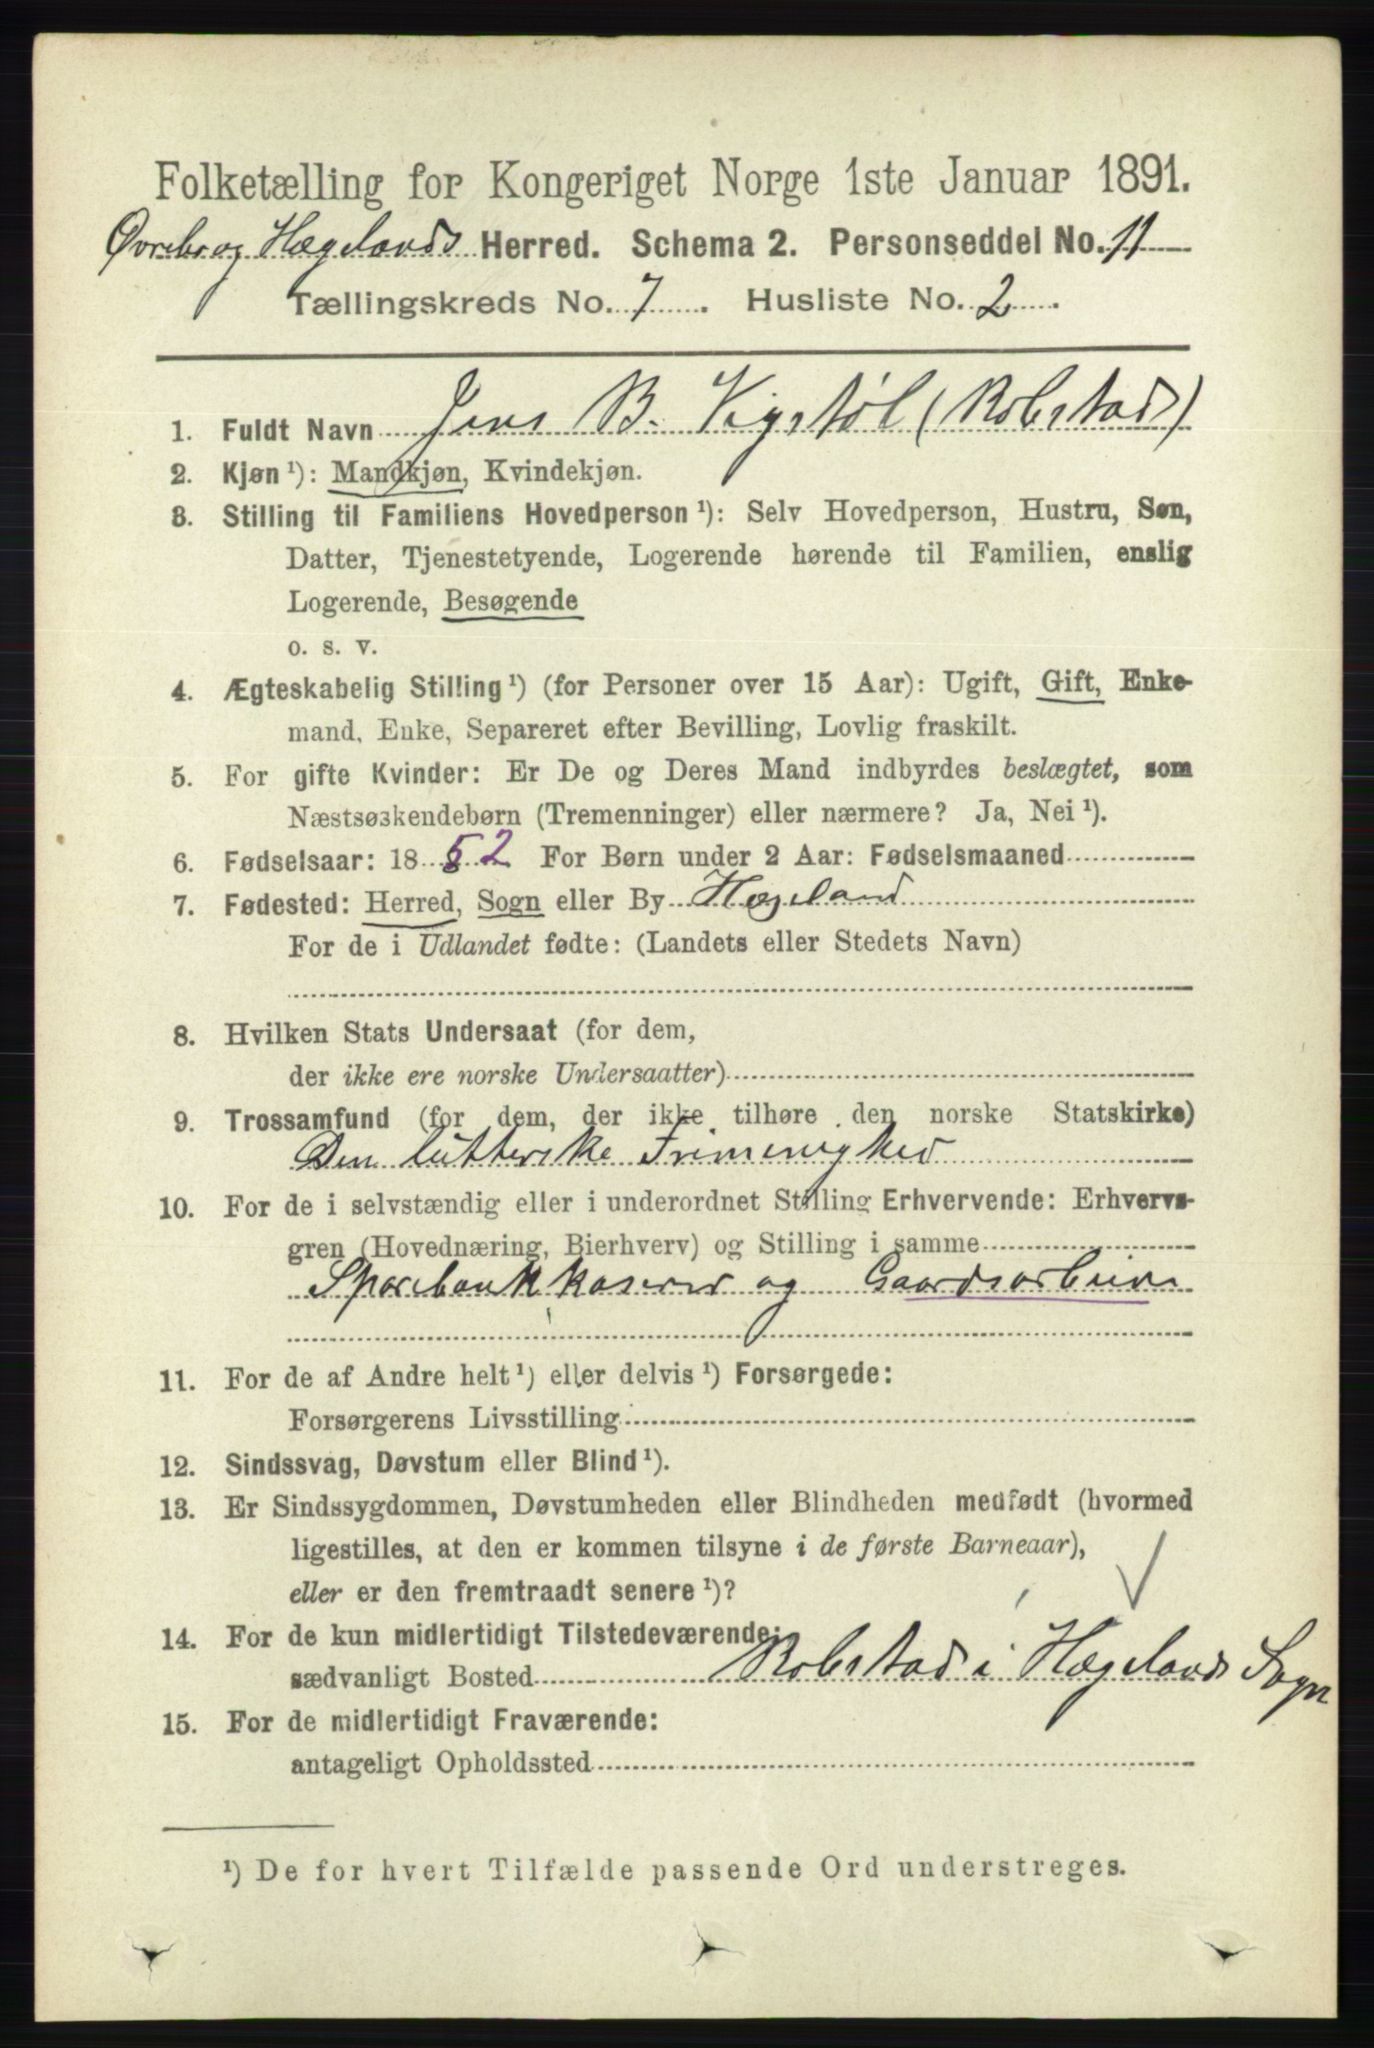 Folketælling for Kongeriget Norge 1ste Januar 1891.
Øvrebø og Hægelands Herred. Schema 2. Personseddel No. 11
Tællingskreds No. 7. Husliste No. 2.
1. Fuldt Navn Jens B. Vigstøl (Robstad)
2. Kjøn ¹): Mandkjøn, Kvindekjøn.
3. Stilling til Familiens Hovedperson ¹): Selv Hovedperson, Hustru, Søn,
Datter, Tjenestetyende, Logerende hørende til Familien, enslig
Logerende, Besøgende
o. s. v.
4. Ægteskabelig Stilling ¹) (for Personer over 15 Aar): Ugift, Gift, Enke-
mand, Enke, Separeret efter Bevilling, Lovlig fraskilt.
5. For gifte Kvinder: Er De og Deres Mand indbyrdes beslægtet, som
Næstsøskendebørn (Tremenninger) eller nærmere? Ja, Nei ¹).
6. Fødselsaar: 1852 For Børn under 2 Aar: Fødselsmaaned
7. Fødested: Herred, Sogn eller By Hægeland
For de i Udlandet fødte: (Landets eller Stedets Navn)
8. Hvilken Stats Undersaat (for dem,
der ikke ere norske Undersaatter)
9. Trossamfund (for dem, der ikke tilhøre den norske Statskirke)
Den lutterske Frimenighed
10. For de i selvstændig eller i underordnet Stilling Erhvervende: Erhvervs-
gren (Hovednæring, Bierhverv) og Stilling i samme
Sparebankkaserer og Gaardsarbeide
11. For de af Andre helt ¹) eller delvis ¹) Forsørgede:
Forsørgerens Livsstilling
12. Sindssvag, Døvstum eller Blind ¹).
13. Er Sindssygdommen, Døvstumheden eller Blindheden medfødt (hvormed
ligestilles, at den er kommen tilsyne i de første Barneaar),
eller er den fremtraadt senere ¹)?
14. For de kun midlertidigt Tilstedeværende:
sædvanligt Bosted Robstad i Hægelands Sogn
15. For de midlertidigt Fraværende:
antageligt Opholdssted
¹) De for hvert Tilfælde passende Ord understreges.